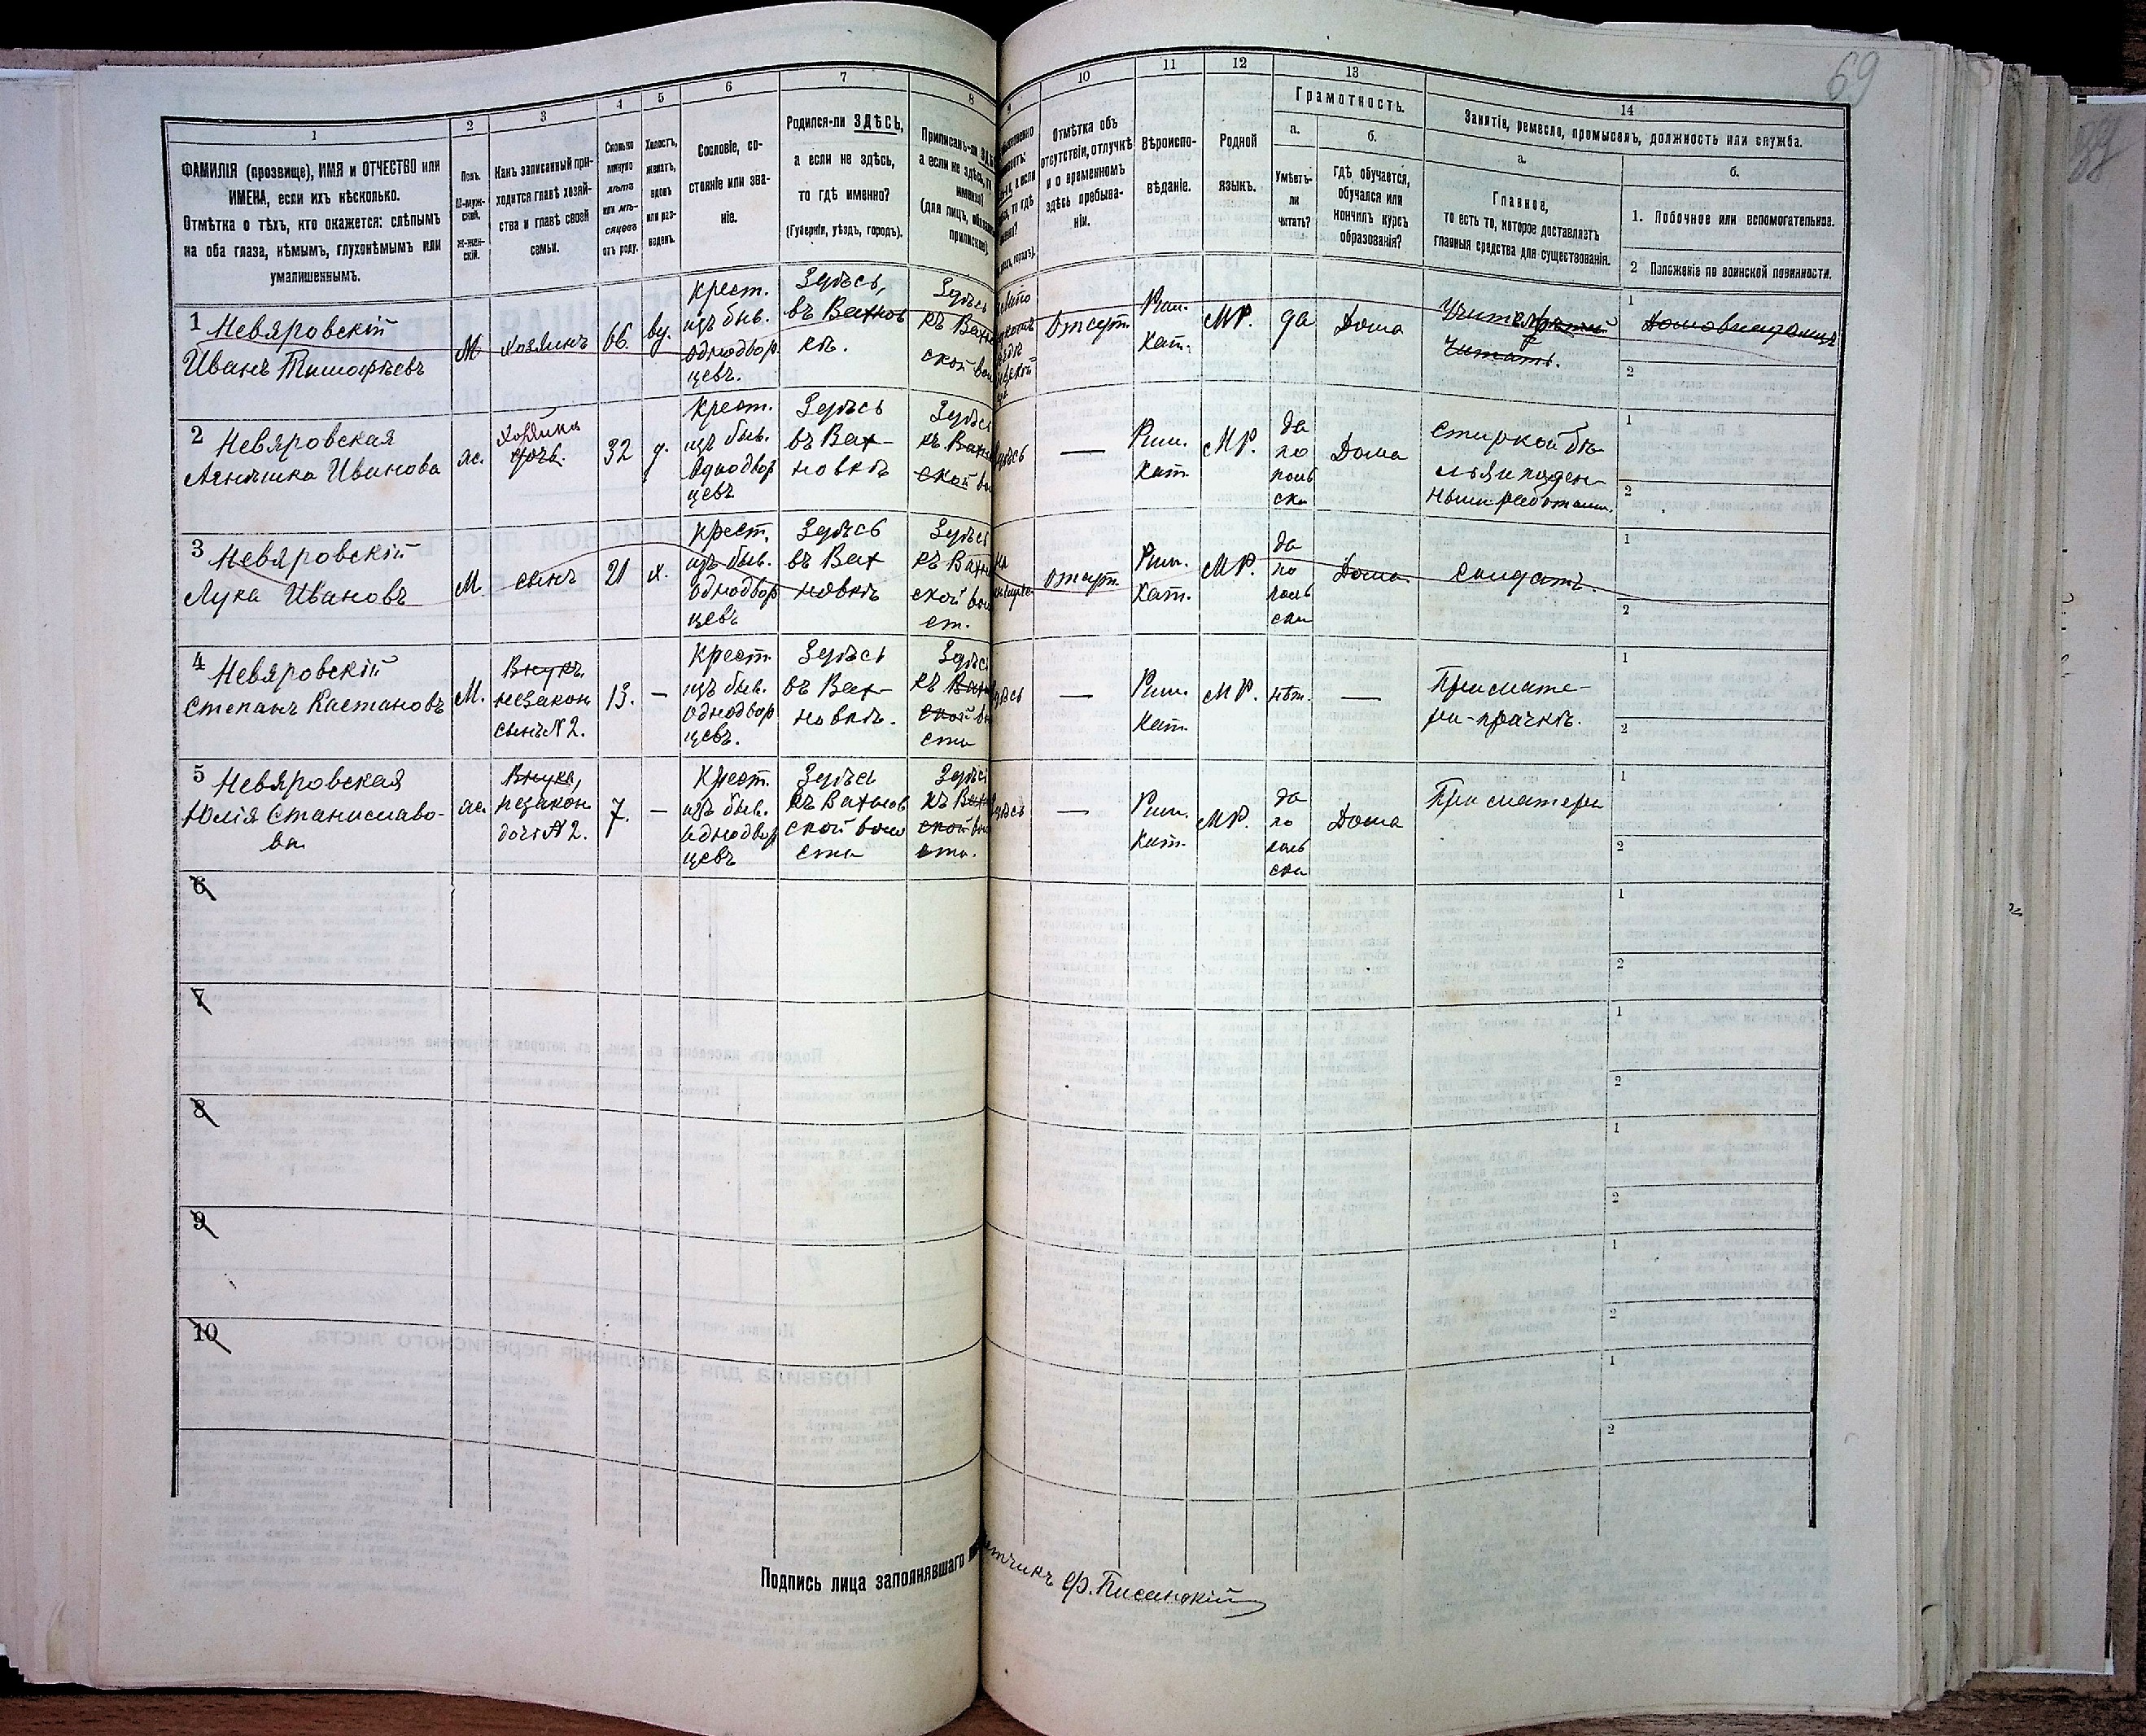 69
1
2
3
4
5
6
7
8
9
10
11
12
13
14
ФАМИЛІЯ (прозвище), ИМЯ и ОТЧЕСТВО или
ИМЕНА, если ихъ нѣсколько.
Отмѣтка о тѣхъ, кто окажется: слѣпымъ
на оба глаза, нѣмымъ, глухонѣмымъ или
умалишеннымъ.
Полъ.
М-муж-
ской.
Ж-жен-
скій.
Какъ записанный при-
ходится главѣ хозяй-
ства и главѣ своей
семьи.
Сколько
минуло
лѣтъ
или мѣ-
сяцевъ
отъ роду.
Холостъ,
женатъ,
вдовъ
или раз-
веденъ.
Сословіе, со-
стояніе или зва-
ніе.
Родился-ли ЗДѢСЬ,
а если не здѣсь,
то гдѣ именно?
(Губернія, уѣздъ, городъ).
Приписанъ-ли
а если не здѣсь,
(для лицъ,
Отмѣтка объ
отсутствіи, отлучкѣ
и о временномъ
здѣсь пребыва-
ніи.
Вѣроиспо-
вѣданіе.
Родной
языкъ.
Грамотность.
а.
Умѣетъ-
ли
читать?
б.
Гдѣ обучается,
обучался или
кончилъ курсъ
образованія?
Занятіе, ремесло, промыселъ, должность или служба.
а.
Главное,
то есть то, которое доставляетъ
главныя средства для существованія.
б.
1. Побочное или вспомогательное.
2 Положеніе по воинской повинности.
1 Невяровскій
Иванъ Тимофѣевъ
М
хозяинъ
66.
ву.
крест.
изъ быв.
однодвор
цевъ.
Здѣсь,
въ Вахнов
кѣ.
Здѣсь
къ Вахн
ской вол
Отсут.
Рим.
Кат.
МР.
да
Дома
Домовладѣлецъ
1
2
2 Невяровская
Агнѣшка Иванова
ж.
хозяйка
дочь.
32
д.
крест.
изъ быв.
однодвор
цевъ
Здѣсь
въ Вах-
новкѣ
Здѣсь
къ Вахн
ской во
—
Рим.
Кат.
МР.
да
по
поль
ски
Дома
Стиркой бѣ-
лья и поден-
ными работами.
1
2
3 Невяровскій
Лука Ивановъ
М
сынъ
21
х.
крест.
изъ быв.
однодвор
цевъ
Здѣсь
въ Вах
новкѣ
Здѣсь
къ Вахн
ской вол
ст.
отсут.
Рим.
Кат.
МР.
да
по
поль
ски
Дома.
солдатъ.
1
2
4 Невяровскій
Степанъ Каетановъ
М.
Внукъ.
незакон
сынъ N 2.
13.
—
крест.
изъ быв.
однодвор
цевъ.
Здѣсь
въ Вах-
новкѣ.
Здѣсь
къ Вахн
ской во
сти
—
Рим.
Кат.
МР.
нѣт.
—
При мате-
ри-прачкѣ.
1
2
5 Невяровская
Юлія Станиславо-
ва
ж.
Внука,
незакон
дочь N 2.
7.
—
Крест.
изъ быв.
однодвор
цевъ
Здѣсь
къ Вахнов
ской воло
сти
Здѣсь
къ Вахн
ской во
сти.
—
Рим.
Кат.
МР.
да
по
поль
ски
Дома
При матери
1
2
6
1
2
7
1
2
8
1
2
9
1
2
10
1
2
Подпись лица заполнявшаго
Ф. Писанскій